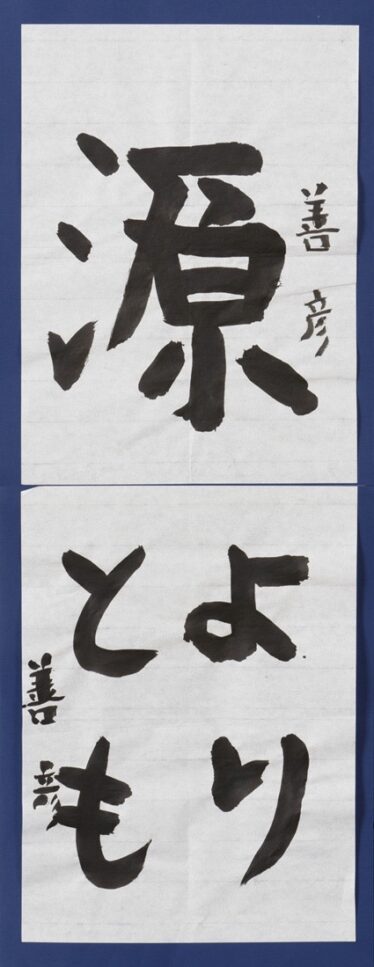 源
善彦
より
とも
善彦